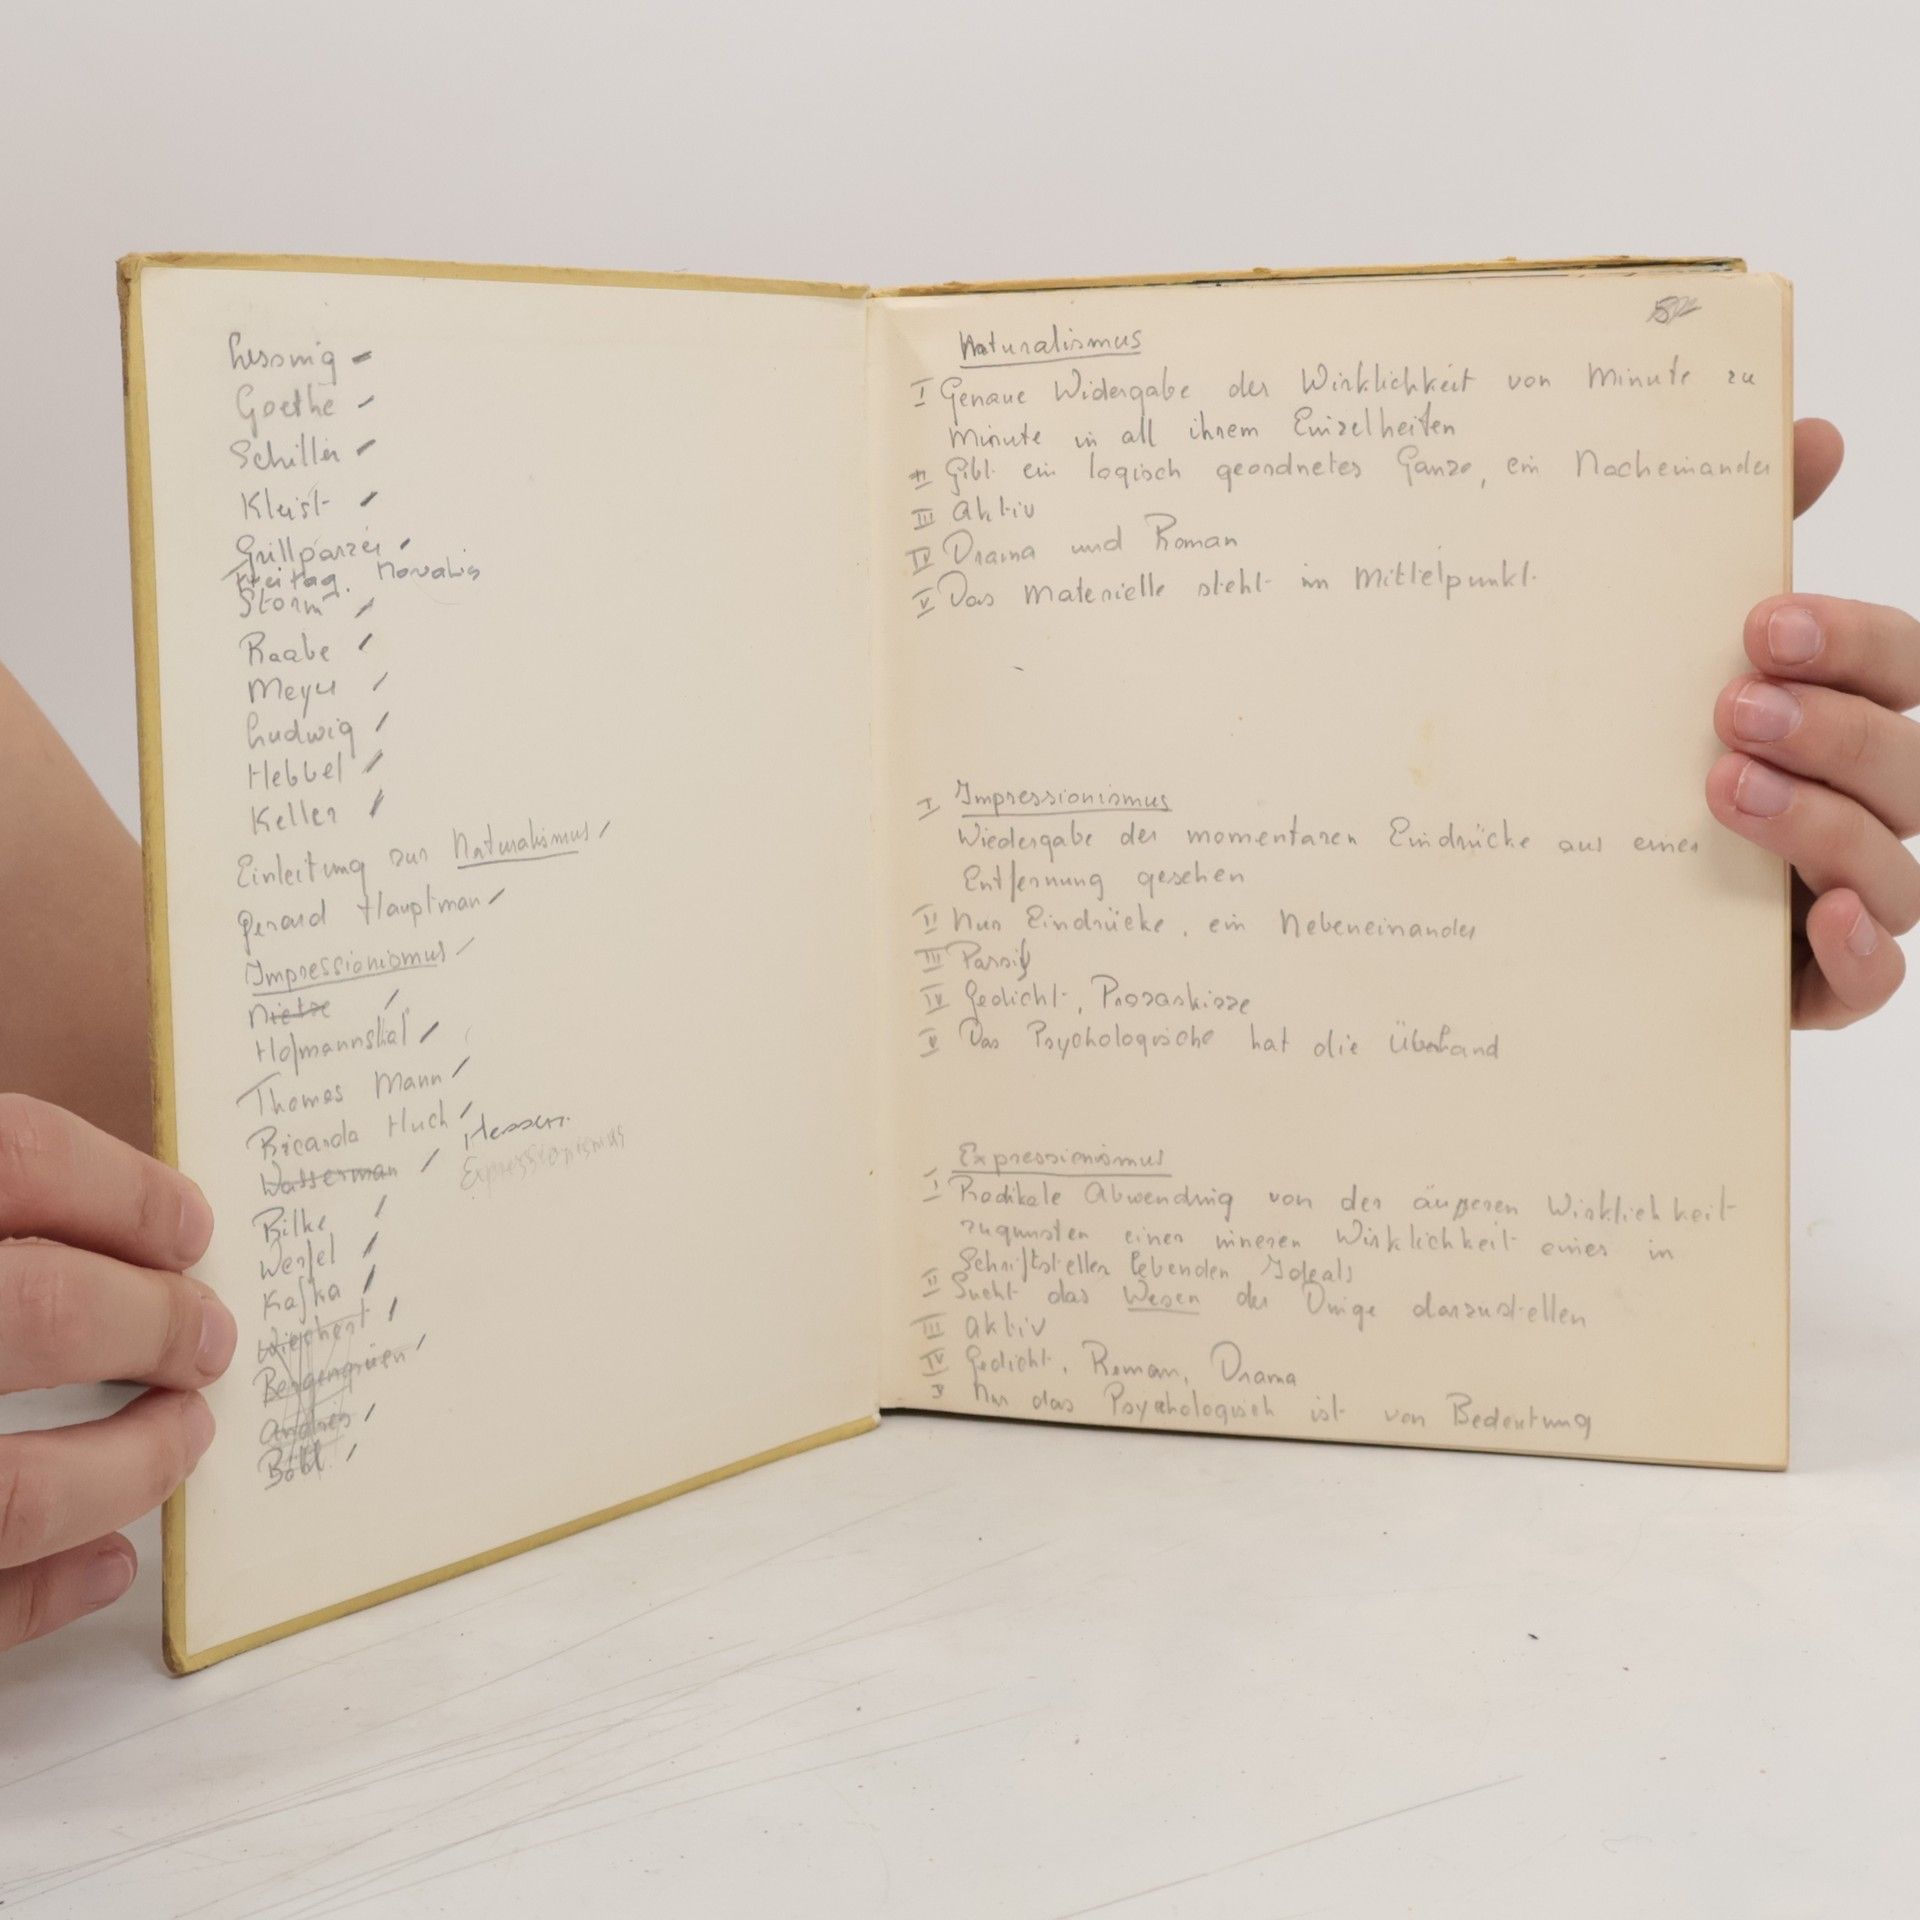 Lessing -
Goethe -
Schiller -
Kleist -
Grillparzer -
Freitag. Novalis
Storm -
Raabe -
Meyer -
Ludwig -
Hebbel -
Keller -
Einleitung zur Naturalismus -
Gerard Hauptman -
Impressionismus -
Nietse -
Hofmannsthal -
Thomas Mann -
Ricarda Huch -
Hessen.
Wasserman -
Expressionismus
Rilke -
Werfel -
Kafka -
Wiechert -
Bergengrüen -
Andres -
Böhl -
Naturalismus
I Genaue Widergabe der Wirklichkeit von Minute zu
Minute in all ihrem Einzelheiten
II Gibt ein logisch geordnetes Ganze, ein Nacheinander
III Aktiv
IV Drama und Roman
V Das Materielle steht im Mittelpunkt.
Impressionismus
I Wiedergabe der momentaren Eindrücke aus einer
Entfernung gesehen
II Nur Eindrücke, ein Nebeneinander
III Passif
IV Gedicht, Prosaskizze
V Das Psychologische hat die Überhand
Expressionismus
I Radikale Abwendung von der äußeren Wirklichkeit
zugunsten einer inneren Wirklichkeit eines in
Schriftsteller lebenden Ideals
II Sucht das Wesen der Dinge darzustellen
III Aktiv
IV Gedicht, Roman, Drama
V Nur das Psychologisch ist von Bedeutung